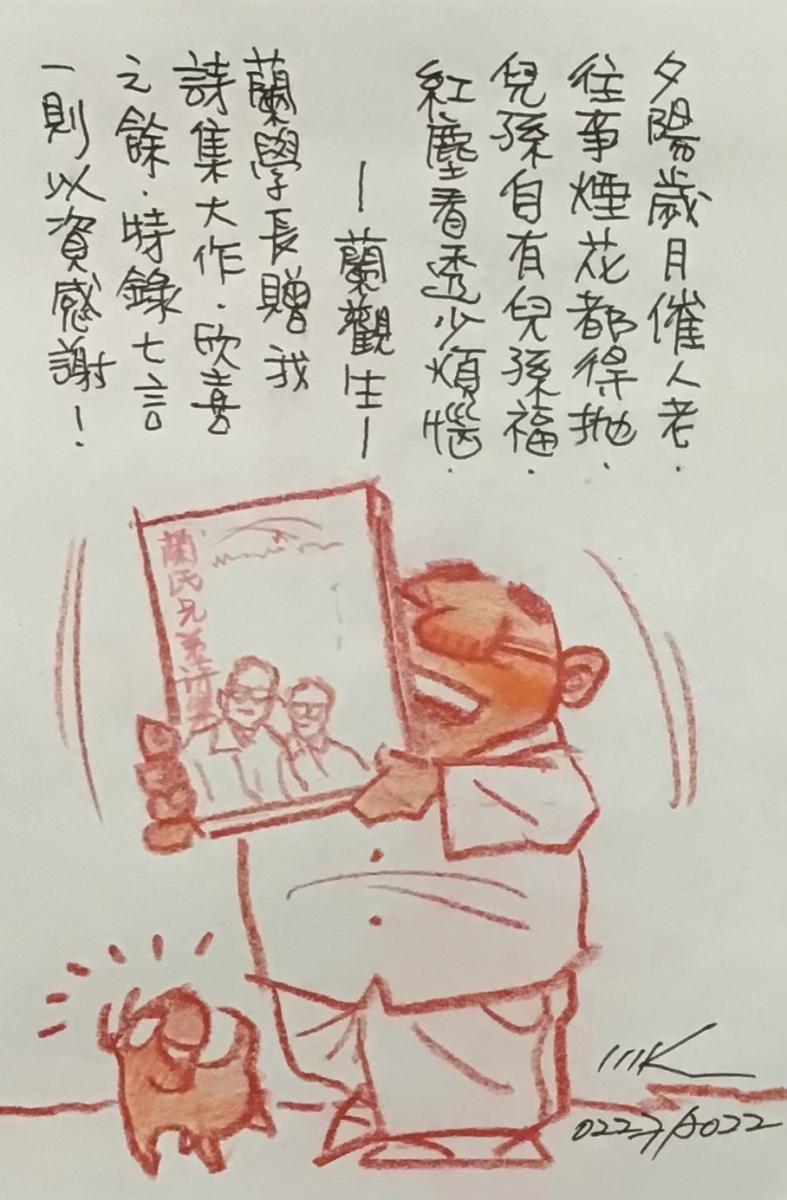 夕陽歲月催人老.
往事煙花都得拋.
兒孫自有兒孫福.
紅塵看透少煩惱.
—蘭觀生—
蘭學長贈我
詩集大作.欣喜
之餘.特錄七言
一則以資感謝!
蘭氏兄弟詩集